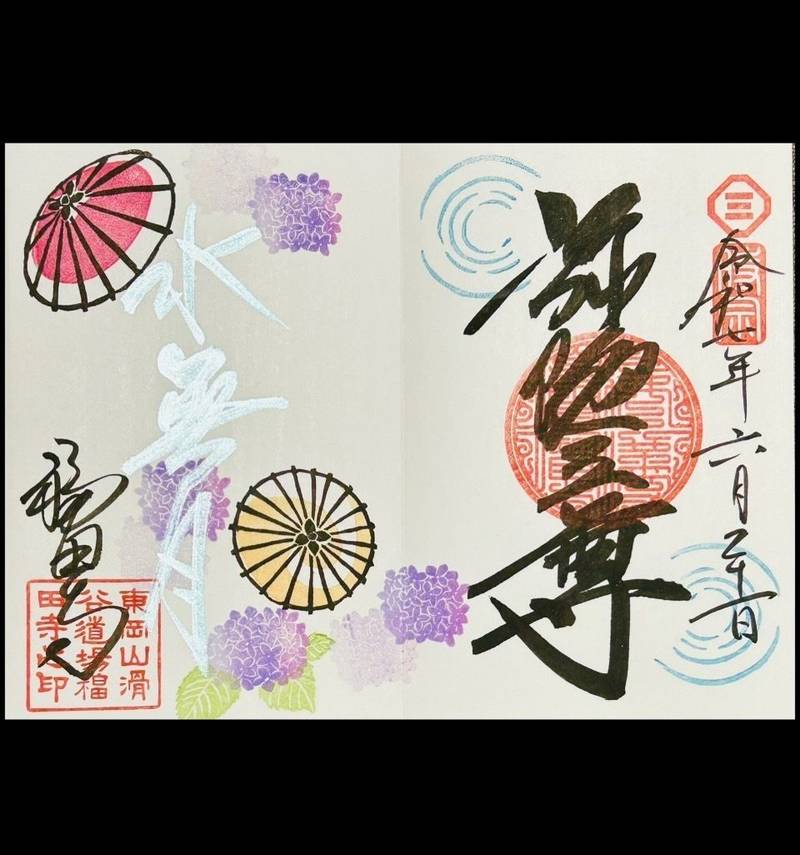 令和七年六月二十一日
弥陀三尊
水無月
福田寺
東岡山滑
谷道場福
田寺之印